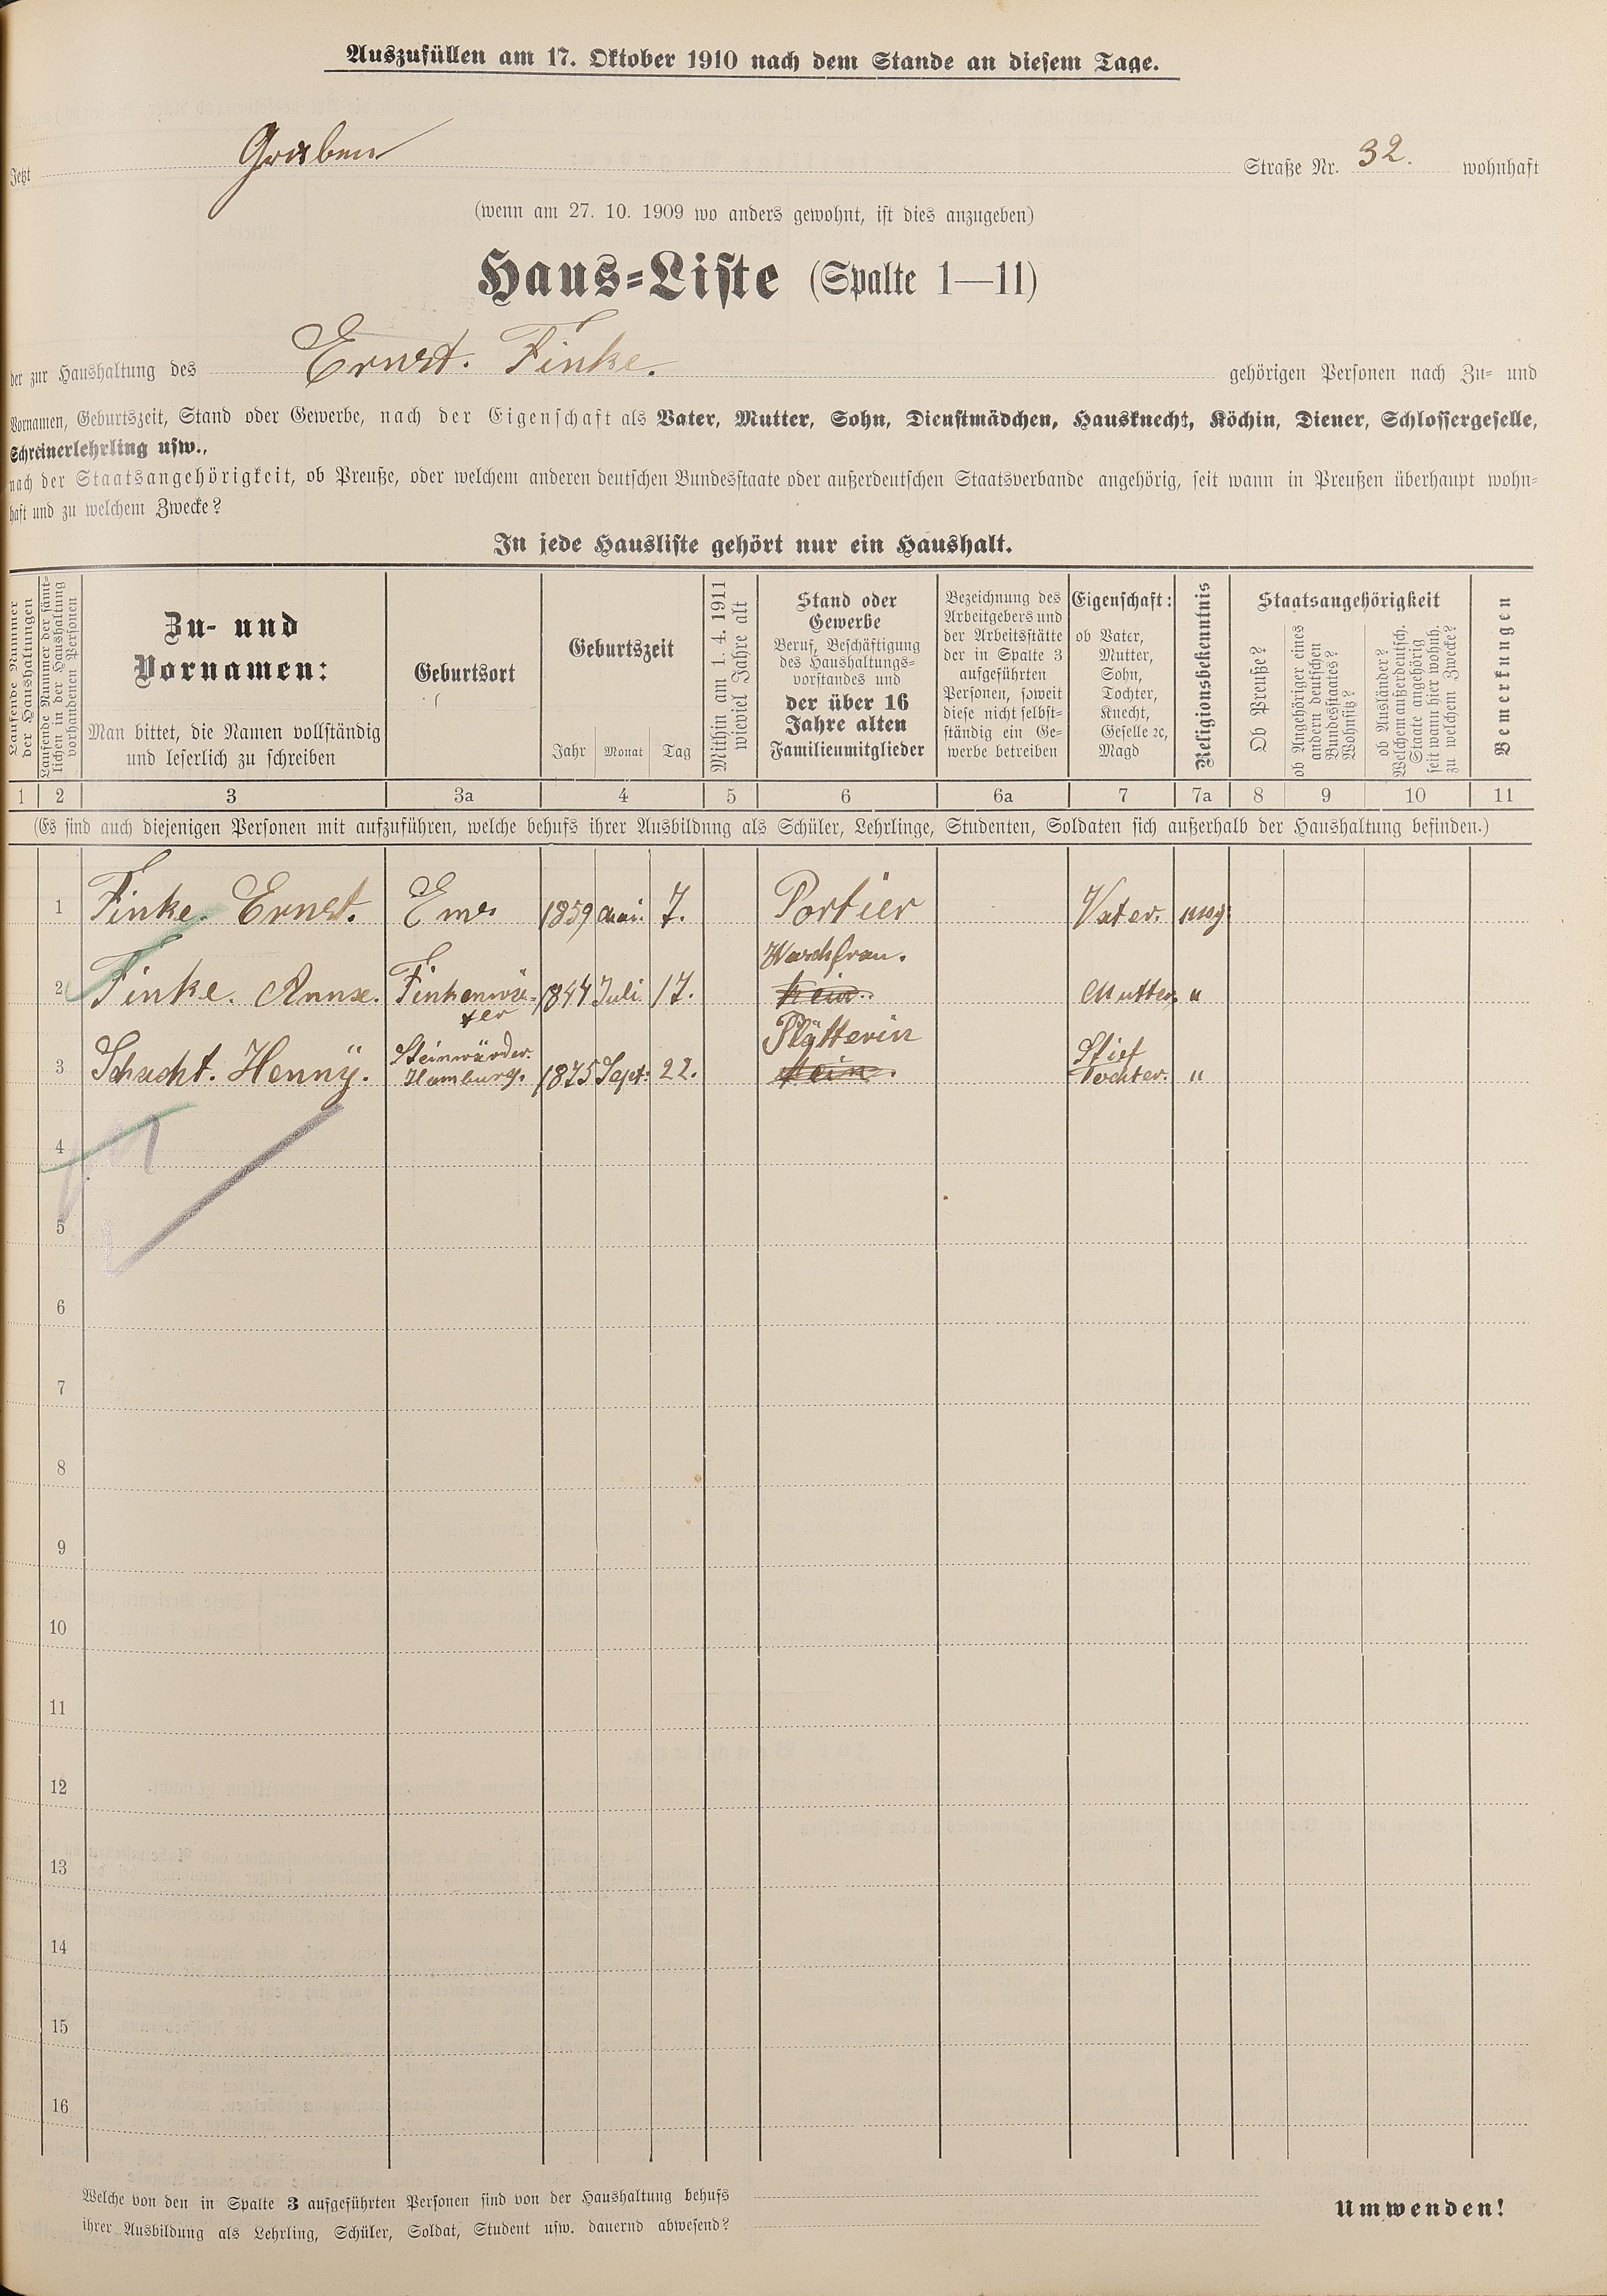 Auszufüllen am 17. Oktober 1910 nach dem Stande an diesem Tage.
Jetzt Graben Straße Nr. 32. wohnhaft
(wenn am 27. 10. 1909 wo anders gewohnt, ist dies anzugeben)
Haus-Liste (Spalte 1—11)
der zur Haushaltung des Ernst. Finke. gehörigen Personen nach Zu- und
Vornamen, Geburtszeit, Stand oder Gewerbe, nach der Eigenschaft als Vater, Mutter, Sohn, Dienstmädchen, Hausknecht, Köchin, Diener, Schlossergeselle,
Schreinerlehrling usw.,
nach der Staatsangehörigkeit, ob Preuße, oder welchem anderen deutschen Bundesstaate oder außerdeutschen Staatsverbande angehörig, seit wann in Preußen überhaupt wohn-
haft und zu welchem Zwecke?
In jede Hausliste gehört nur ein Haushalt.
Laufende Nummer
der Haushaltungen
Laufende Nummer der sämt-
lichen in der Haushaltung
vorhandenen Personen
Zu- und
Vornamen:
Man bittet, die Namen vollständig
und leserlich zu schreiben
Geburtsort
Geburtszeit
Jahr Monat Tag
Mithin am 1. 4. 1911
wieviel Jahre alt
Stand oder
Gewerbe
Beruf, Beschäftigung
des Haushaltungs-
vorstandes und
der über 16
Jahre alten
Familienmitglieder
Bezeichnung des
Arbeitgebers und
der Arbeitsstätte
der in Spalte 3
aufgeführten
Personen, soweit
diese nicht selbst-
ständig ein Ge-
werbe betreiben
Eigenschaft:
ob Vater,
Mutter,
Sohn,
Tochter,
Knecht,
Geselle ꝛc,
Magd
Religionsbekenntnis
Staatsangehörigkeit
Ob Preuße?
ob Angehöriger eines
andern deutschen
Bundesstaates?
Wohnsitz?
ob Ausländer?
Welchem außerdeutsch.
Staate angehörig
seit wann hier wohnh.
zu welchem Zwecke?
Bemerkungen
1 2 3 3a 4 5 6 6a 7 7a 8 9 10 11
(Es sind auch diejenigen Personen mit aufzuführen, welche behufs ihrer Ausbildung als Schüler, Lehrlinge, Studenten, Soldaten sich außerhalb der Haushaltung befinden.)
1 Finke. Ernst. Ems 1859 Mai. 7. Portier Vater. evog.
Waschfrau.
2 Finke. Anna. Finkenwär- 1844 Juli. 17. kein. Mutter, "
der
Plätterin
Steinwärder. Stief
3 Schacht. Henny. Hamburg. 1875 Sept: 22. kein. Tochter. "
4
5
6
7
8
9
10
11
12
13
14
15
16
Welche von den in Spalte 3 aufgeführten Personen sind von der Haushaltung behufs
ihrer Ausbildung als Lehrling, Schüler, Soldat, Student usw. dauernd abwesend?
Umwenden!